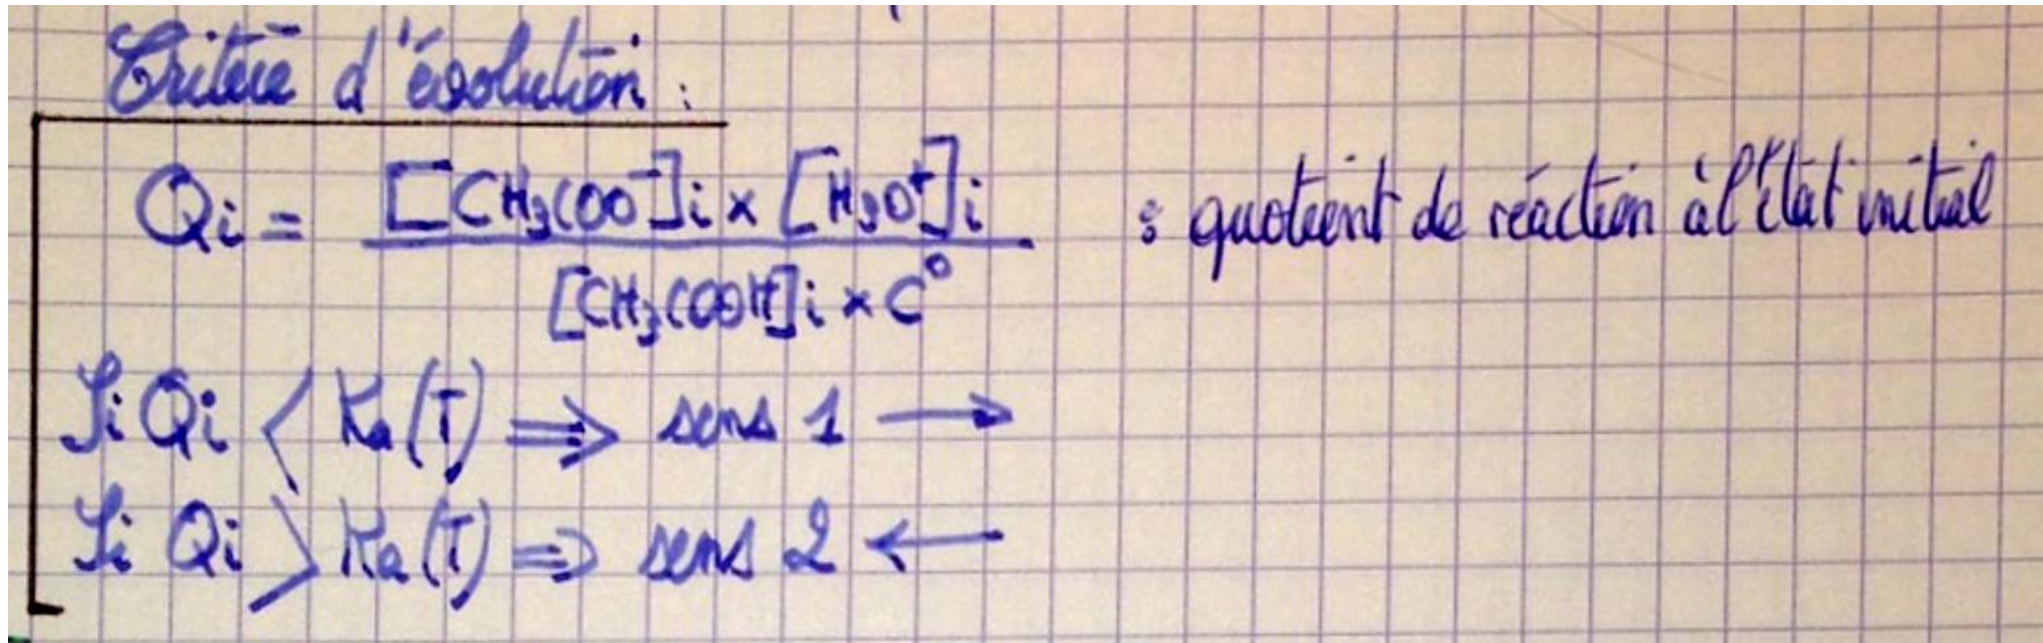 Critère d'évolution :
Qi = [CH₃COO⁻]i × [H₃O⁺]i / [CH₃COOH]i × C° : quotient de réaction à l'état initial
Si Qi < Ka(T) ⇒ sens 1 →
Si Qi > Ka(T) ⇒ sens 2 ←